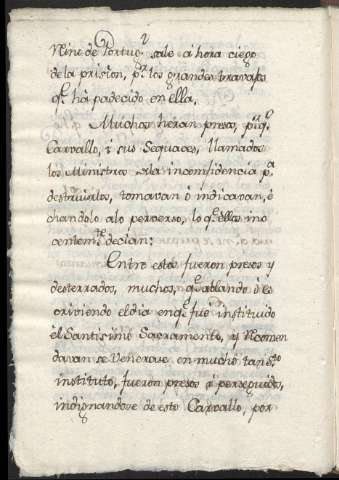 Reine de Portug.ˡ sale ahora ciego
de la prision, p.ʳ los grandes travajos
q.ᵉ ha padecido en ella.
Muchos heran presos, p.ʳq.ᵉ
Carvallo, i sus Sequaces, llamados
los Ministros de la inconfidencia p.ᵃ
destruirlos, tomavan ó indicavan, é
chandolo alo perverso, lo q.ᵉ ellos ino
centem.ᵗᵉ decian:
Entre estos fueron presos y
desterrados, muchos, q.ᵉ ablando ó es
criviendo el dia en q.ᵉ fué instituido
el Santisimo Sacramento, y Recomen
davan se Venerase en mucho tan s.ᵗᵒ
instituto, fueron presos i perseguidos,
indignandose de esto Carvallo, por